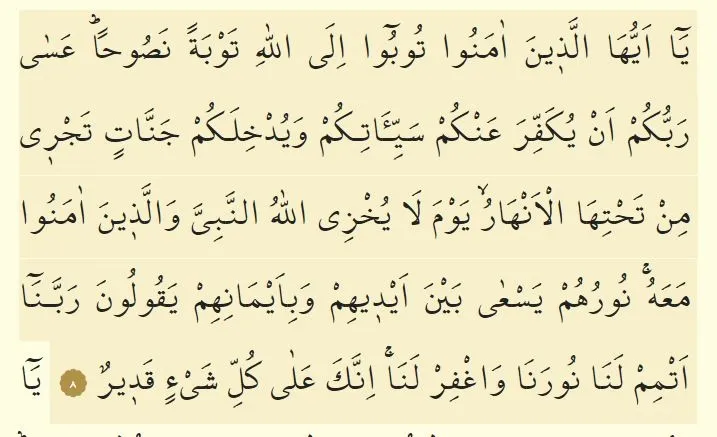 يَٓا اَيُّهَا الَّذ۪ينَ اٰمَنُوا تُوبُٓوا اِلَى اللّٰهِ تَوْبَةً نَصُوحاًۜ عَسٰى
رَبُّكُمْ اَنْ يُكَفِّرَ عَنْكُمْ سَيِّـَٔاتِكُمْ وَيُدْخِلَكُمْ جَنَّاتٍ تَجْر۪ى
مِنْ تَحْتِهَا الْاَنْهَارُۙ يَوْمَ لَا يُخْزِى اللّٰهُ النَّبِىَّ وَالَّذ۪ينَ اٰمَنُوا
مَعَهُۚ نُورُهُمْ يَسْعٰى بَيْنَ اَيْد۪يهِمْ وَبِاَيْمَانِهِمْ يَقُولُونَ رَبَّـنَٓا
اَتْمِمْ لَنَا نُورَنَا وَاغْفِرْ لَنَاۚ اِنَّكَ عَلٰى كُلِّ شَىْءٍ قَد۪يرٌ ٨ يَٓا